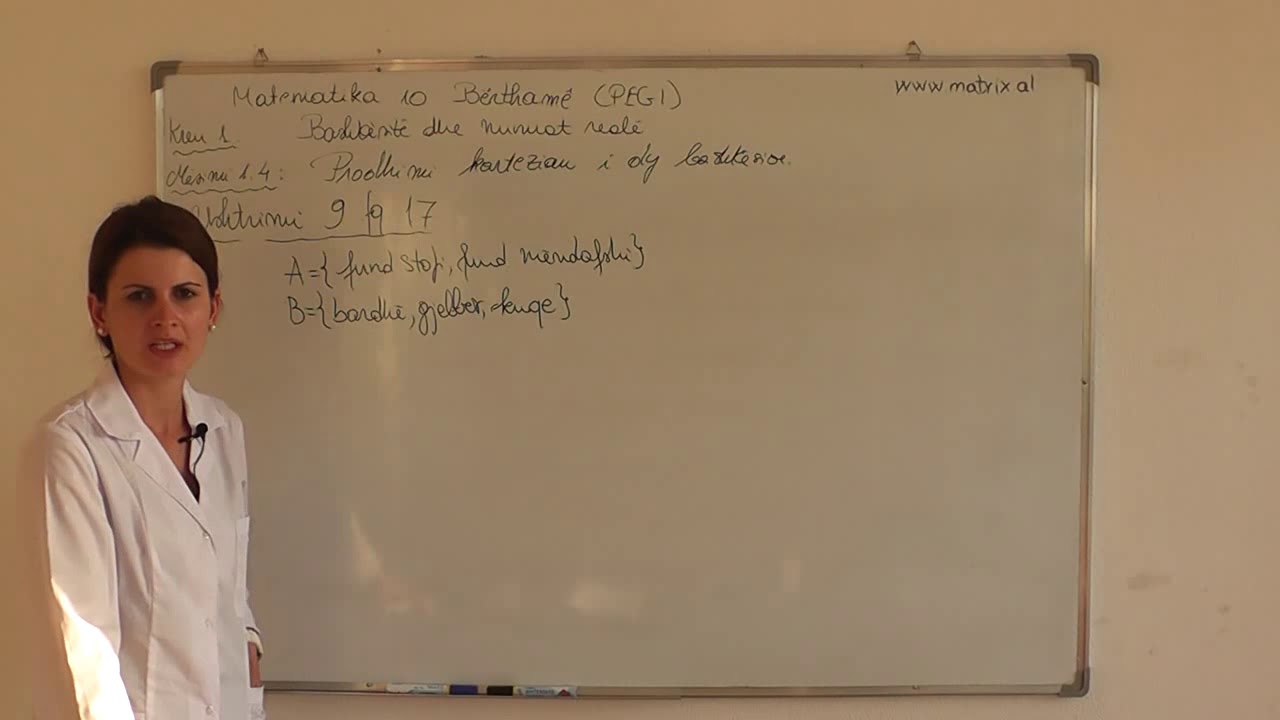 Matematika 10 Bërthamë (PEGI)
www.matrix.al
Kreu 1. Bashkësitë dhe numrat realë
Mësimi 1.4: Prodhimi kartezian i dy bashkësive.
Ushtrimi 9 fq 17
A={fund stofi, fund mëndafshi}
B={bardhë, gjelbër, kuqe}